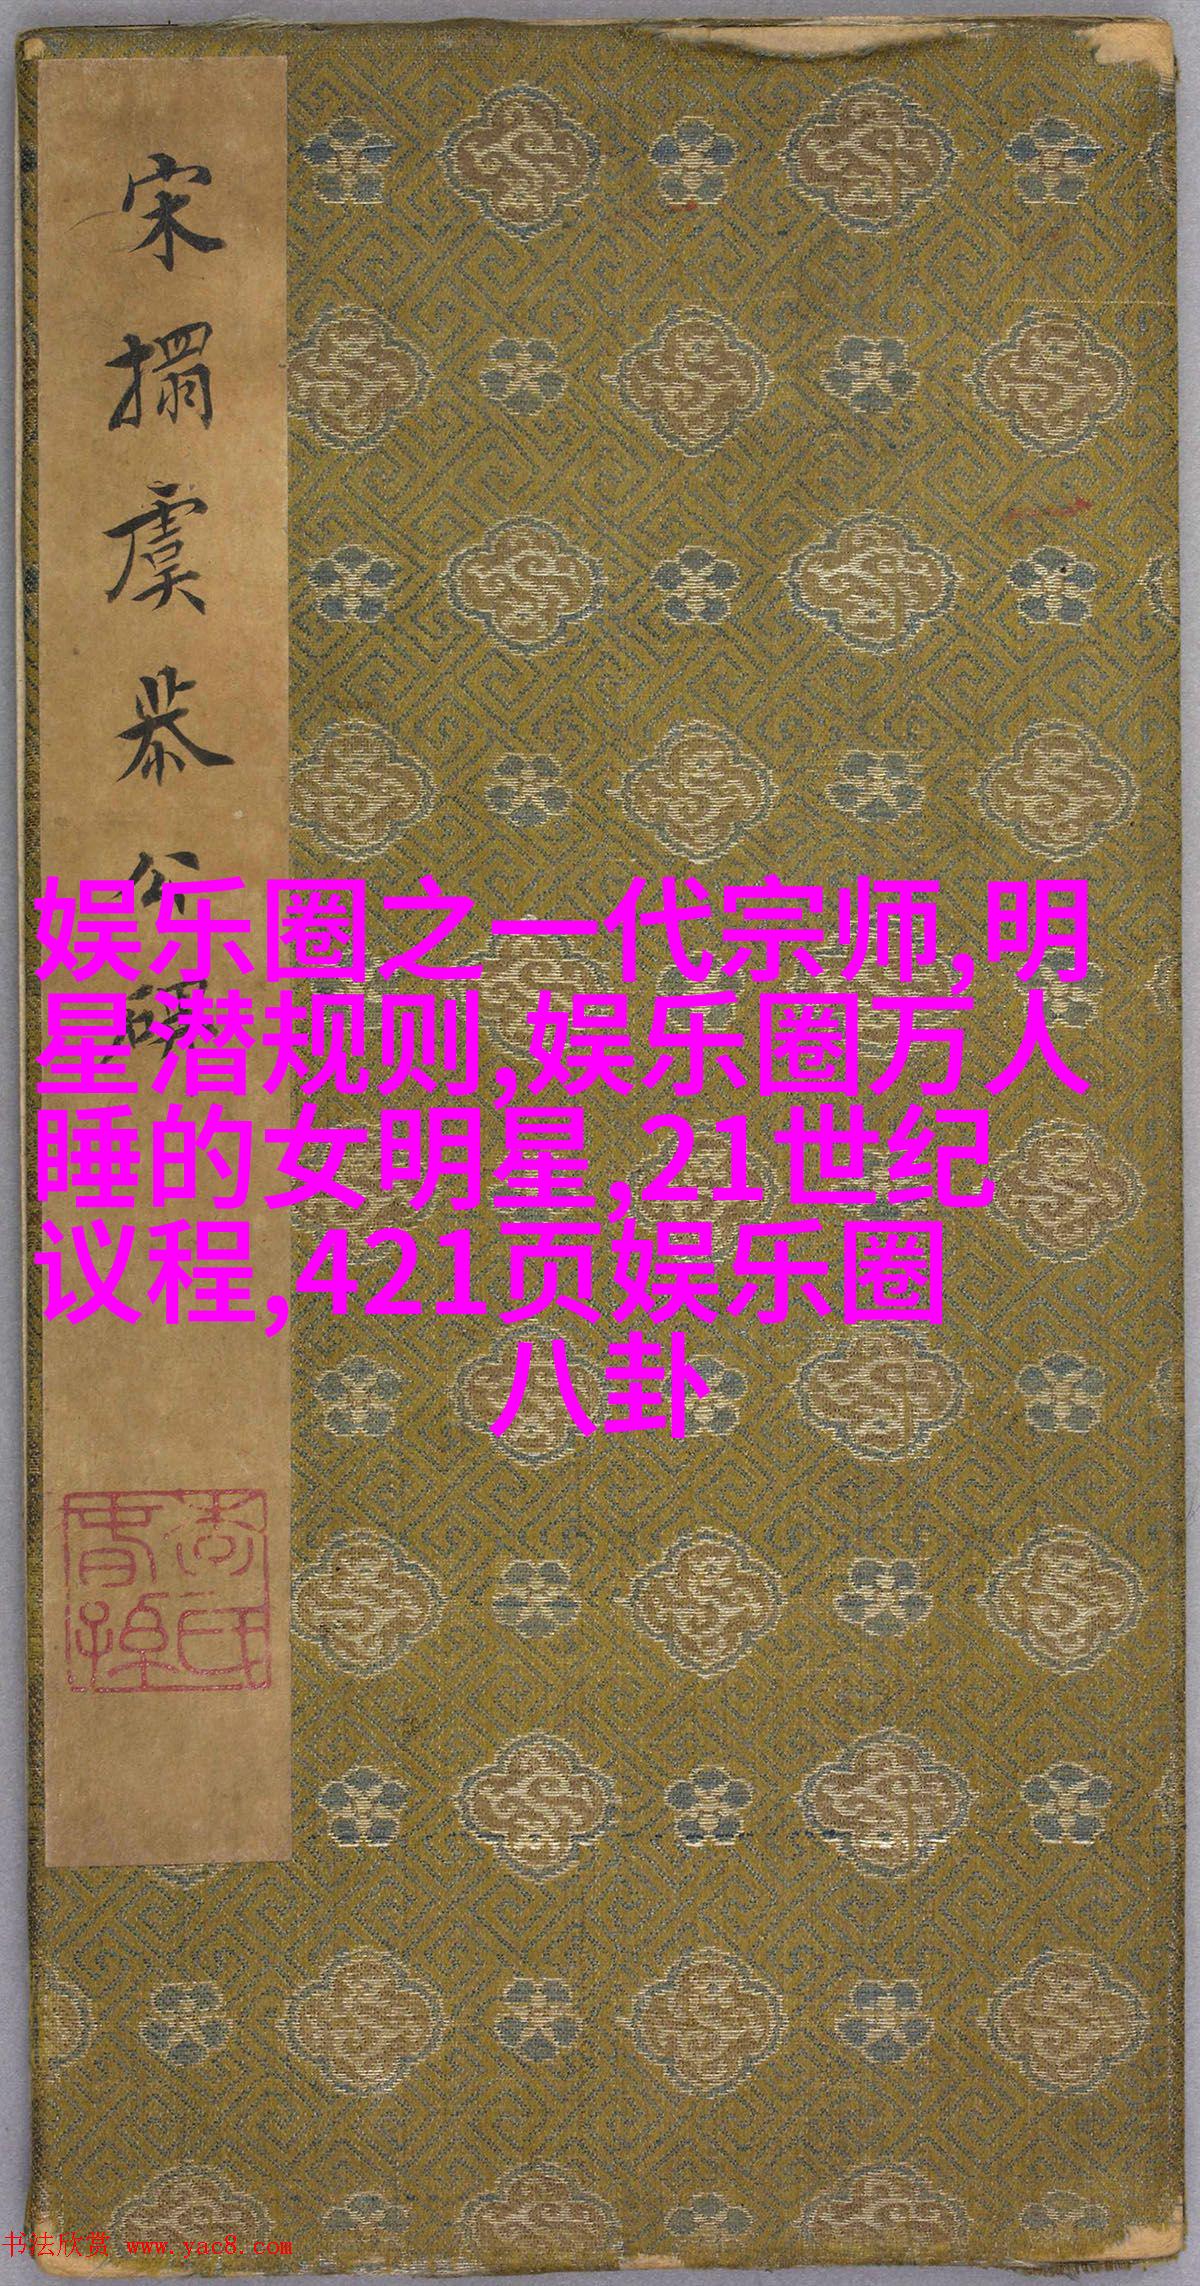 宋搨虞恭公碑
娱乐圈之一代宗师,明
星潜规则,娱乐圈万人
睡的女明星,21世纪
议程,421页娱乐圈
八卦
书法欣赏 www.yac8.com